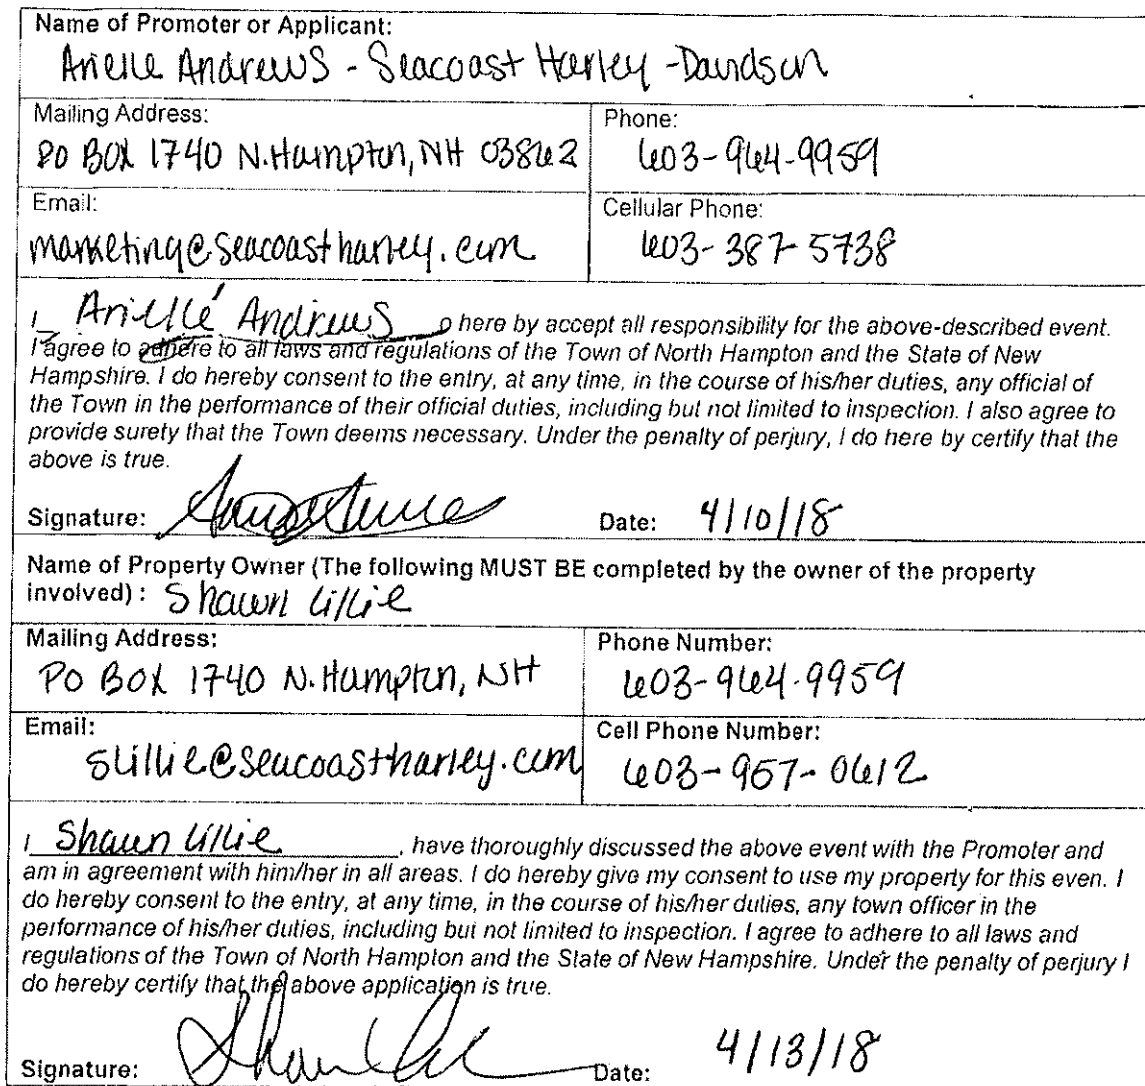 Name of Promoter or Applicant:
Arielle Andrews - Seacoast Harley-Davidson
Mailing Address:
PO BOX 1740 N. Hampton, NH 03862
Phone:
603-964-9959
Email:
marketing@seacoastharley.com
Cellular Phone:
603-387-5738
I Arielle Andrews o here by accept all responsibility for the above-described event.
I agree to adhere to all laws and regulations of the Town of North Hampton and the State of New
Hampshire. I do hereby consent to the entry, at any time, in the course of his/her duties, any official of
the Town in the performance of their official duties, including but not limited to inspection. I also agree to
provide surety that the Town deems necessary. Under the penalty of perjury, I do here by certify that the
above is true.
Signature: Date: 4/10/18
Name of Property Owner (The following MUST BE completed by the owner of the property
involved) : Shawn Lillie
Mailing Address:
PO BOX 1740 N. Hampton, NH
Phone Number:
603-964-9959
Email:
slillie@seacoastharley.com
Cell Phone Number:
603-957-0612
I Shawn Lillie, have thoroughly discussed the above event with the Promoter and
am in agreement with him/her in all areas. I do hereby give my consent to use my property for this even. I
do hereby consent to the entry, at any time, in the course of his/her duties, any town officer in the
performance of his/her duties, including but not limited to inspection. I agree to adhere to all laws and
regulations of the Town of North Hampton and the State of New Hampshire. Under the penalty of perjury I
do hereby certify that the above application is true.
Signature: Date: 4/13/18